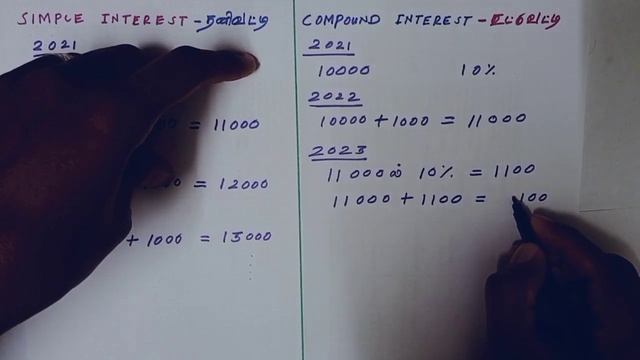 SIMPLE INTEREST - தனிவட்டி
2021
= 11000
= 12000
+ 1000 = 13000
COMPOUND INTEREST - கூட்டுவட்டி
2021
10000 10%
2022
10000 + 1000 = 11000
2023
11000ல் 10% = 1100
11000 + 1100 = 100